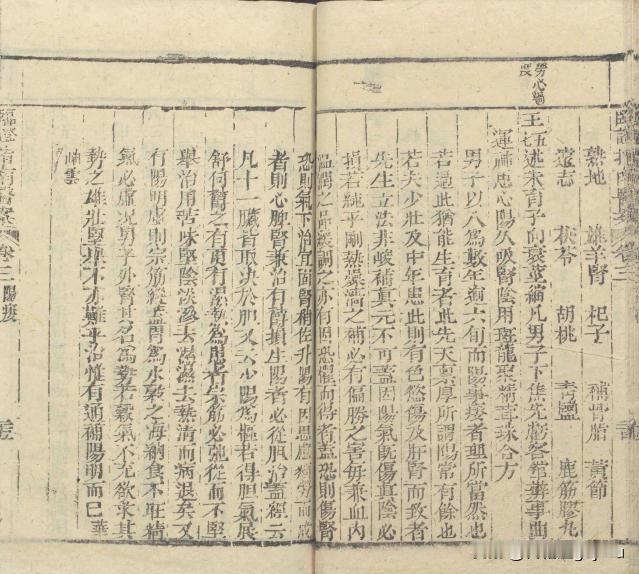 勞心過
度
熟地 雄羊腎 杞子 補骨脂 黃節
遠志 茯苓 胡桃 青鹽 鹿筋膠丸
王五 述未育子向衰莖縮凡男子下焦先虛客館葬事曲
運神思心陽久吸腎陰用斑龍聚精茸珠合方
男子以八為數年逾六旬而陽事痿者理所當然也
若過此猶能生育者此先天稟厚所謂陽常有餘也
若夫少壯及中年患此則有色慾傷及肝腎而致者
先生立法非峻補真元不可蓋因陽氣既傷真陰必
損若純乎剛熱燥濇之補必有偏勝之害每兼血肉
溫潤之品緩調之亦有因恐懼而得者蓋恐則傷腎
恐則氣下治宜固腎稍佐升陽有因思慮煩勞而成
者則心脾腎兼治有鬱損生陽者必從胆治蓋經云
凡十一臟皆取決於胆又云少陽為樞若得胆氣展
舒何鬱之有更有濕熱為患者宗筋必弛縱而不堅
舉治用苦味堅陰淡滲去濕濕去熱清而病退矣又
有陽明虛則宗筋縱蓋胃為水穀之海納食不旺精
氣必虛况男子外腎其名為勢若穀氣不充欲求其
勢之雄壯堅舉不亦難乎治惟有通補陽明而已華
岫雲
臨證指南醫案 卷三 陽痿
臨證指南醫案 卷三